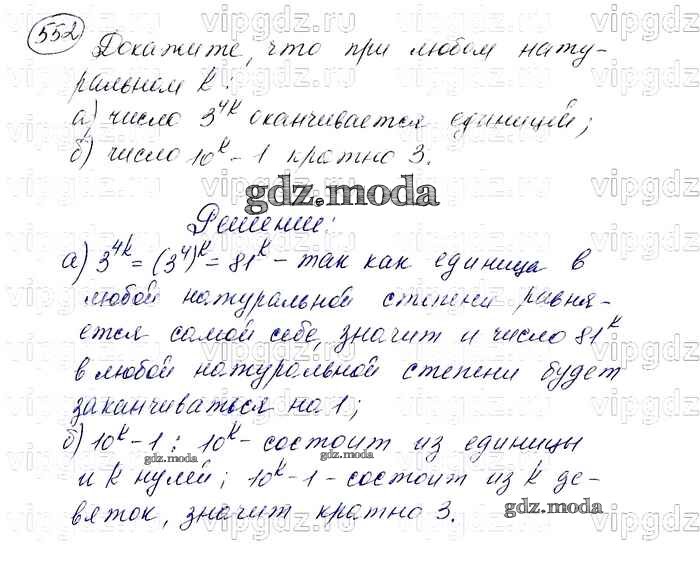 552
Докажите, что при любом нату-
ральном k:
а) число 3^4k оканчивается единицей;
б) число 10^k - 1 кратно 3.
gdz.moda
Решение:
а) 3^4k = (3^4)^k = 81^k - так как единица в
любой натуральной степени равня-
ется самой себе, значит и число 81^k
в любой натуральной степени будет
заканчиваться на 1;
б) 10^k - 1 : 10^k - состоит из единицы
gdz.moda gdz.moda
и k нулей; 10^k - 1 - состоит из k де-
gdz.moda
вяток, значит кратно 3.
vipgdz.com